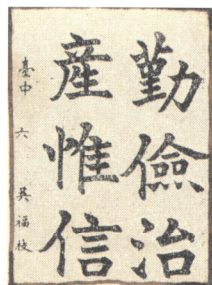 勤儉治
產惟信
臺中 六 吳福枝